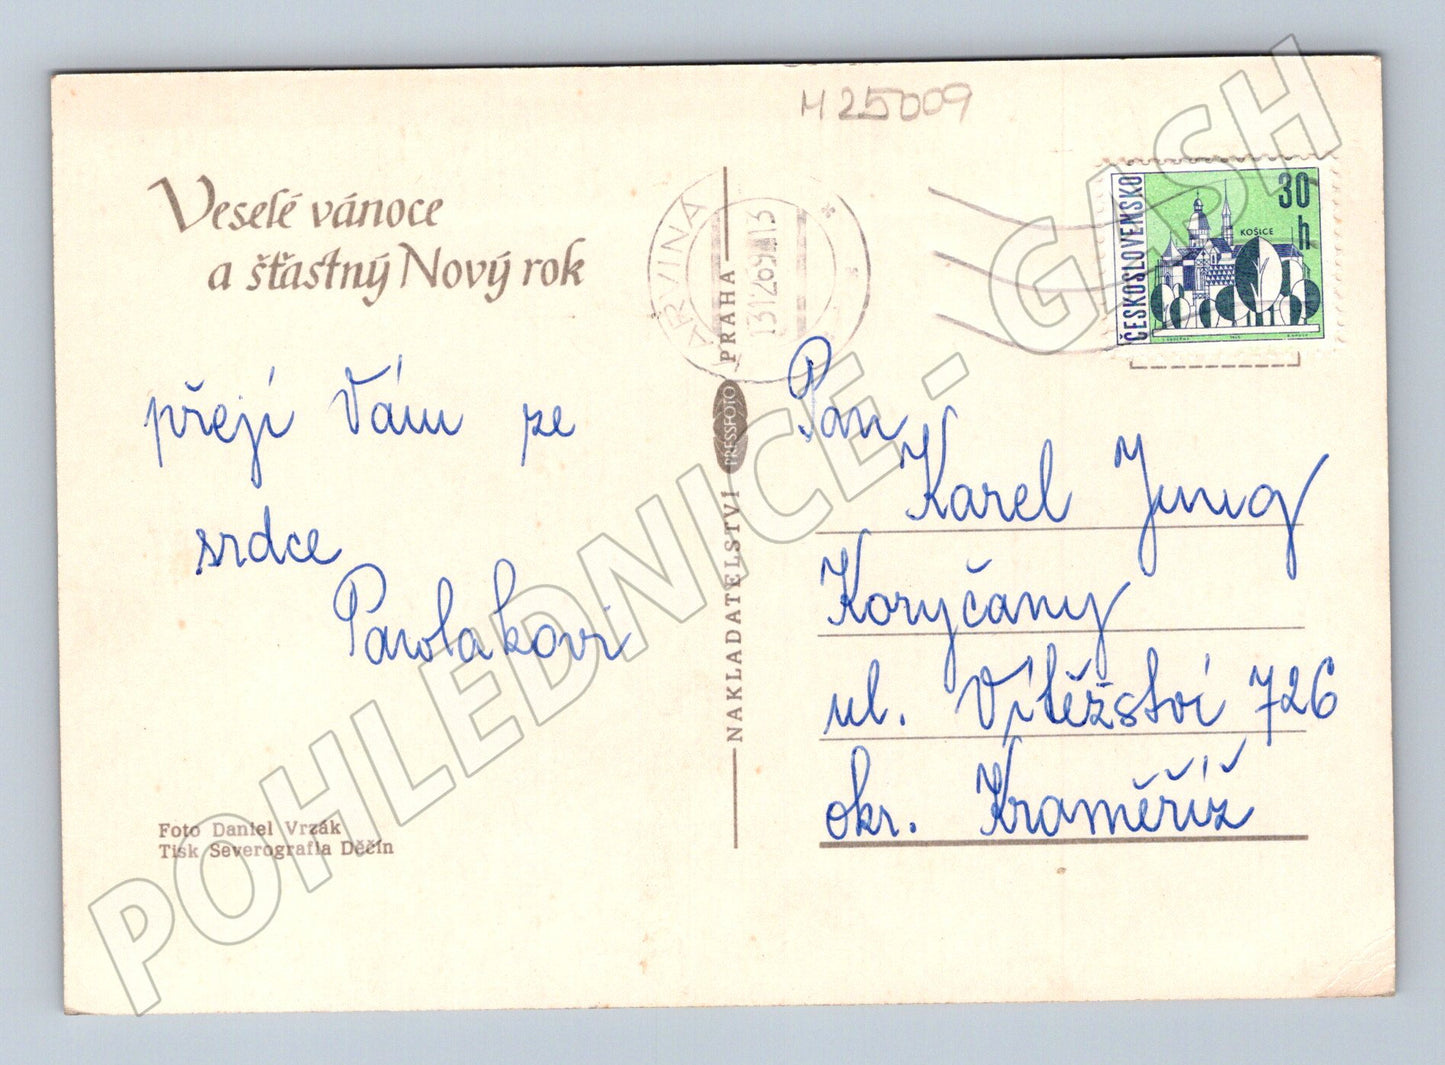 H25009
Veselé vánoce
a šťastný Nový rok
přejí Vám ze
srdce
Pavlakovi
Foto Daniel Vrzák
Tisk Severografia Děčín
NAKLADATELSTVÍ PRESSFOTO PRAHA
RVINÁ
31.12.69-13
ČESKOSLOVENSKO
30 h
KOŠICE
Pan
Karel Jung
Koryčany
ul. Vítěžství 726
okr. Kraměříž
POHLEDNICE - GASH